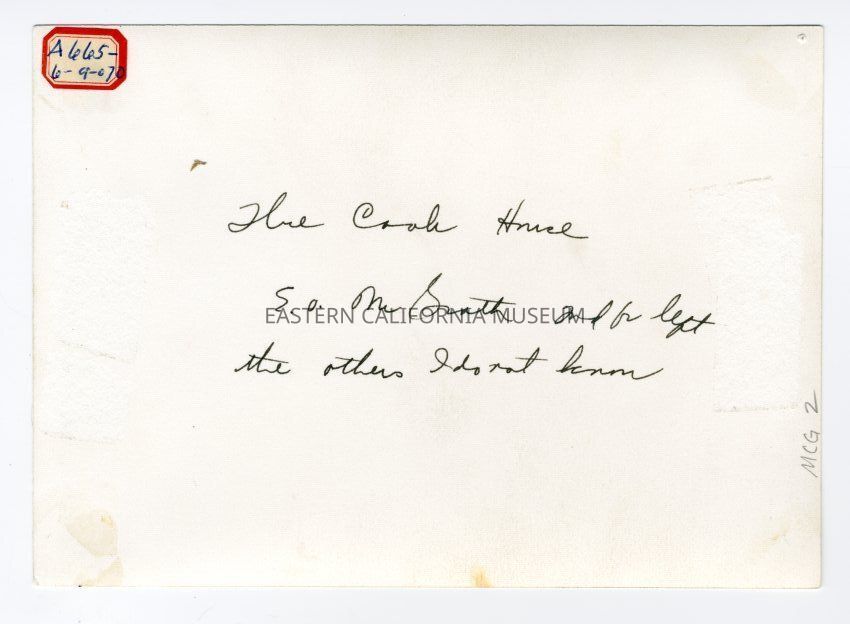 A665-
6-9-070
The Cook House
Mc 2nd fr left
EASTERN CALIFORNIA MUSEUM
the others I do not know
MCG 2